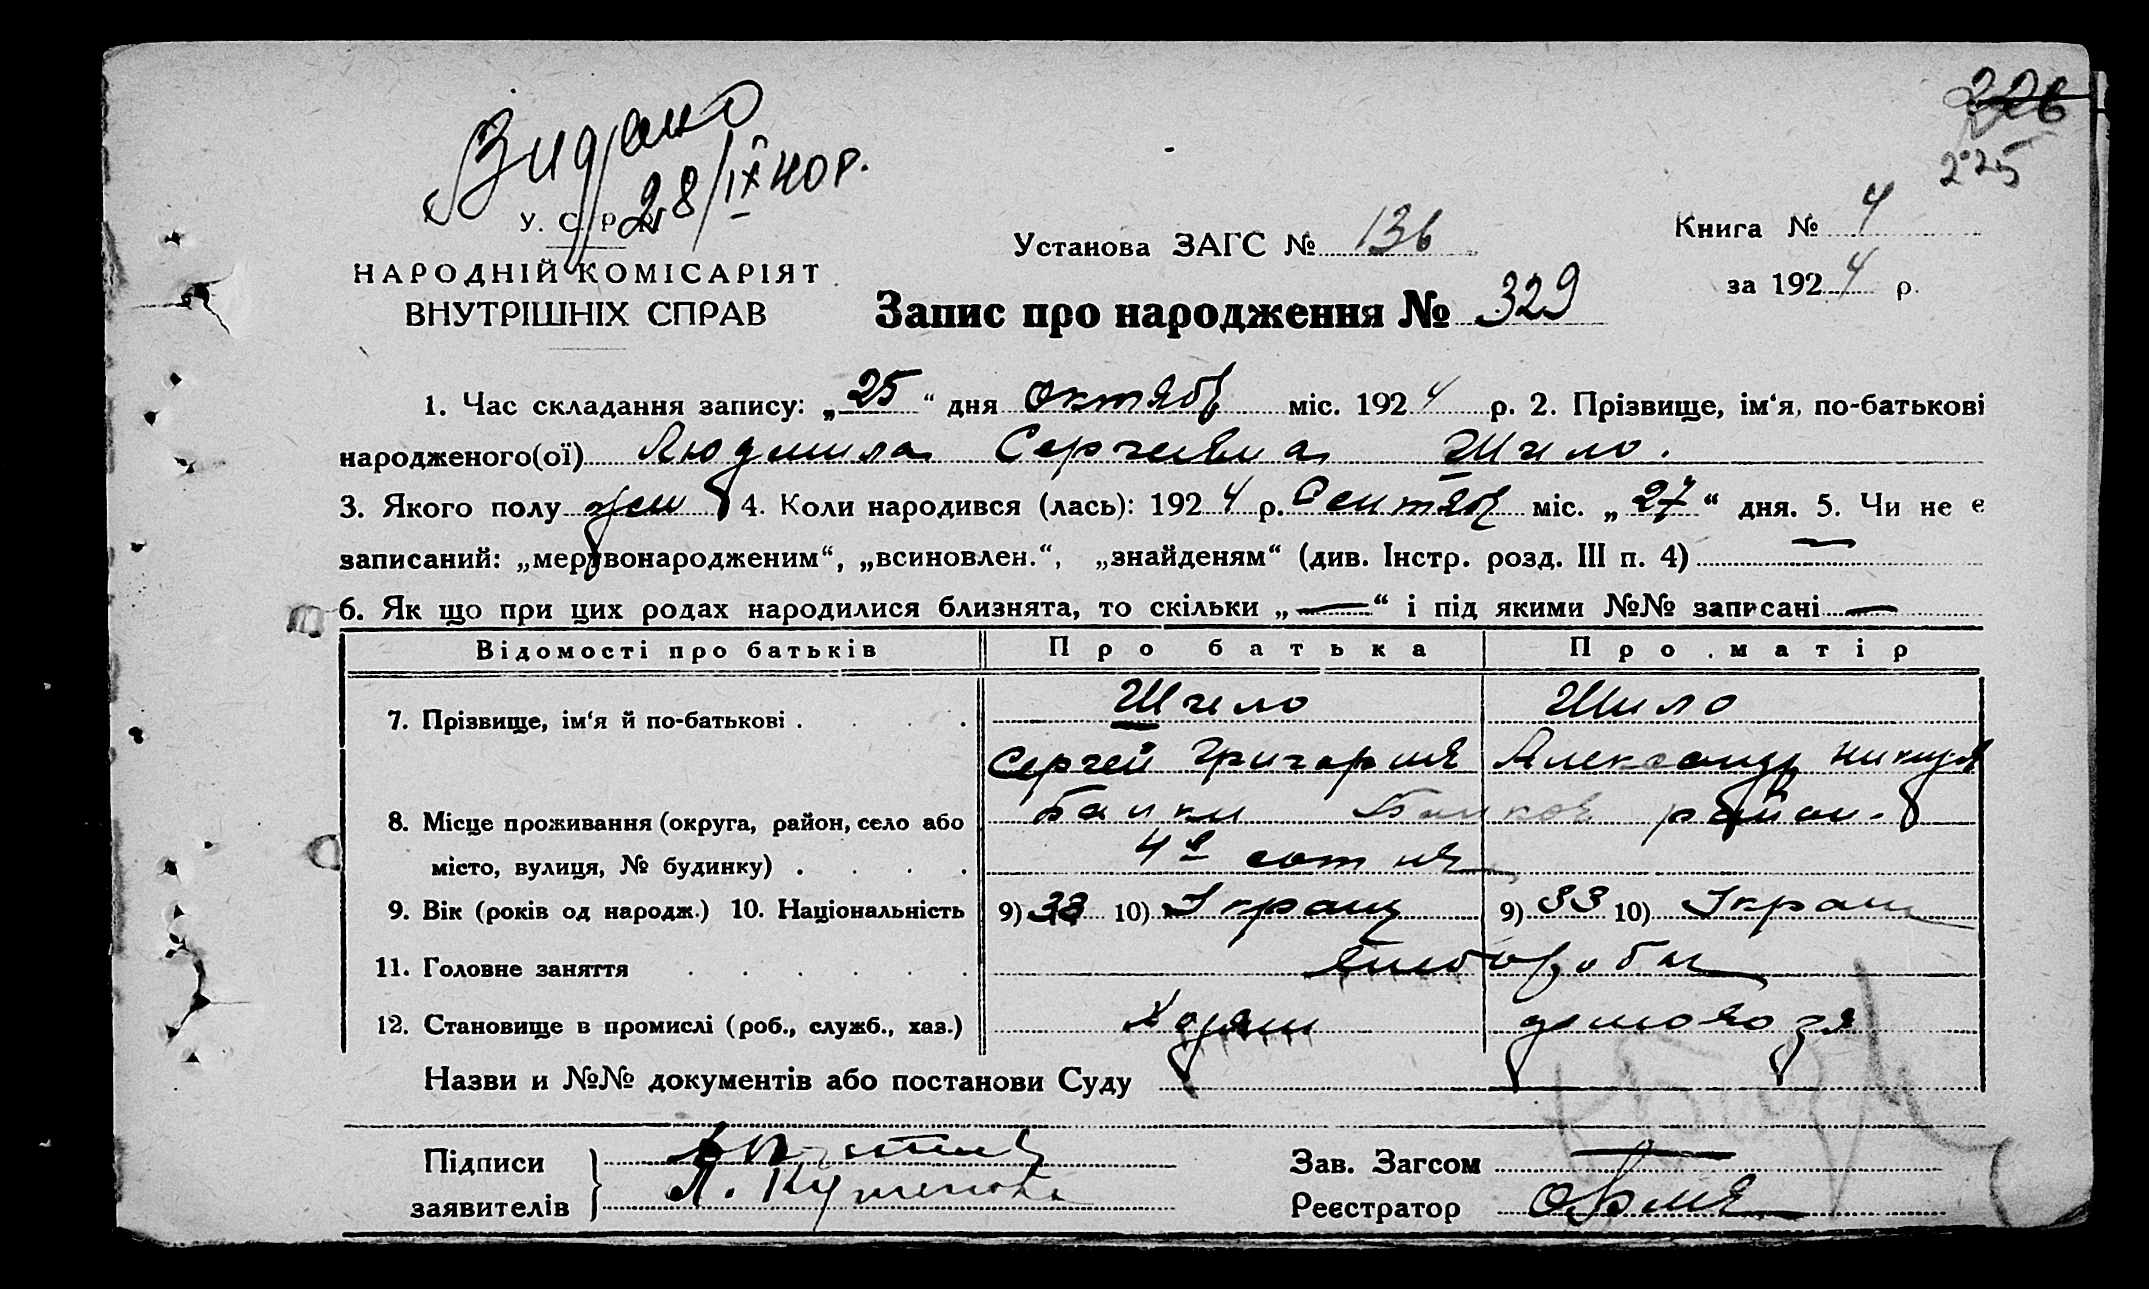 Видано
28/IX 40 р.
226
225
У. С. Р. Р.
НАРОДНІЙ КОМІСАРІЯТ
ВНУТРІШНІХ СПРАВ
Установа ЗАГС № 136
Книга № 4
за 1924 р.
Запис про народження № 329
1. Час складання запису: „25“ дня Октябр міс. 1924 р. 2. Прізвище, ім‘я, по-батькові
народженого(ої) Людмила Сергеевна Шило.
3. Якого полу жен 4. Коли народився (лась): 1924 р. Сентяб міс. „27“ дня. 5. Чи не є
записаний: „мертвонародженим“, „всиновлен.“, „знайденям“ (див. Інстр. розд. III п. 4) —
6. Як що при цих родах народилися близнята, то скільки „—“ і під якими №№ записані —
Відомості про батьків Про батька Про матір
7. Прізвище, ім‘я й по-батькові . . . . Шило Шило
Сергей Григорие Александр
8. Місце проживання (округа, район, село або Банки район.
місто, вулиця, № будинку) . . . . 4я сотня
9. Вік (років од народж.) 10. Національність 9) 33 10) Украин 9) 33 10) Украин
11. Головне заняття . . . . . . хлебороб
12. Становище в промислі (роб., служб., хаз.) Хозяин домохоз
Назви и №№ документів або постанови Суду
Підписи
заявителів
Зав. Загсом —
Реєстратор